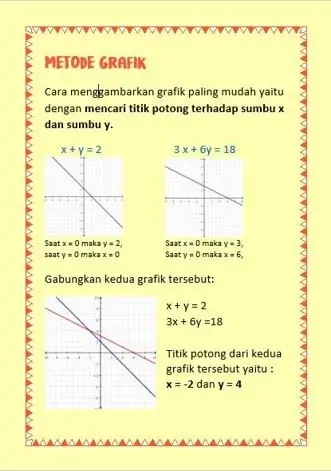 METODE GRAFIK
Cara menggambarkan grafik paling mudah yaitu
dengan mencari titik potong terhadap sumbu x
dan sumbu y.
x + y = 2
3 x + 6y = 18
Saat x = 0 maka y = 2,
saat y = 0 maka x = 0
Saat x = 0 maka y = 3,
Saat y = 0 maka x = 6,
Gabungkan kedua grafik tersebut:
x + y = 2
3x + 6y =18
Titik potong dari kedua
grafik tersebut yaitu :
x = -2 dan y = 4